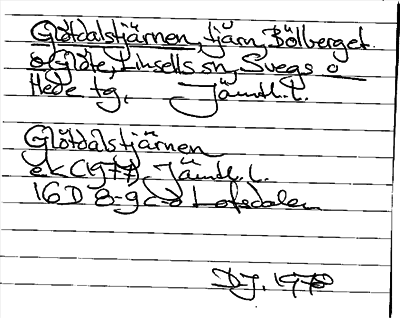 Glötdalstjärnen, tjärn, Bölberget
o Glöte, Linsells sn, Svegs o
Hede tg, Jämtl.l.
Glötdalstjärnen
ek (1977) Jämtl.l.
16D 8-9 c-d Lofsdalen
DJ. 1978